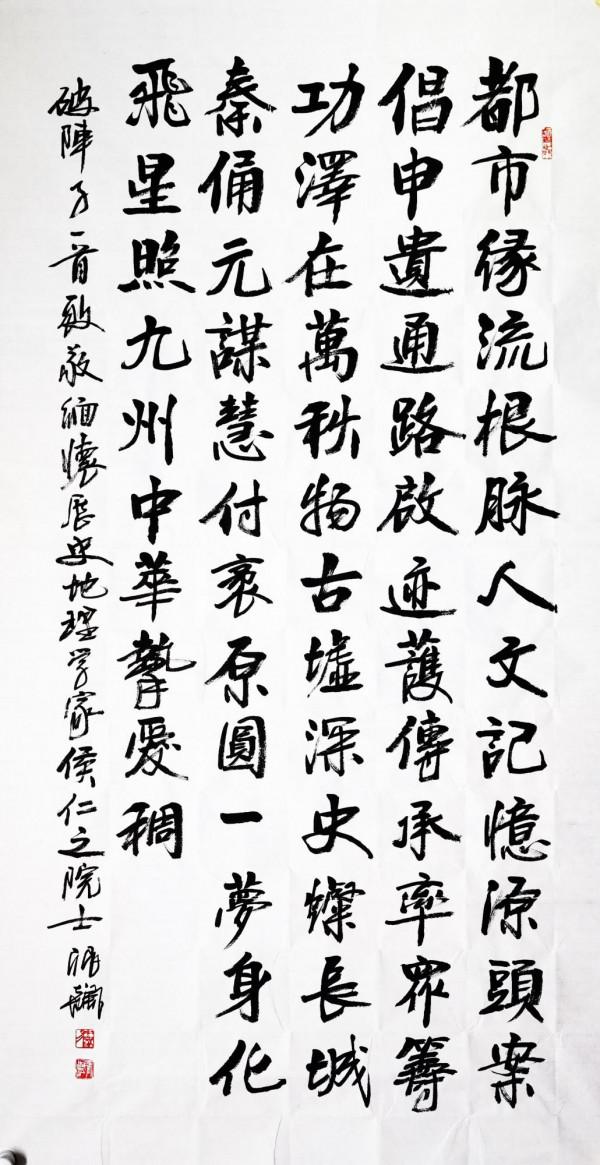 都市緣流根脉人文記憶源頭案
倡申遺通路啟迹護傳承率眾籌
功澤在萬秩物古墟深史燦長城
秦俑元謀慧付衷原圓一夢身化
飛星照九州中華摯愛稠
破陣子一首致敬緬懷历史地理学家侯仁之院士